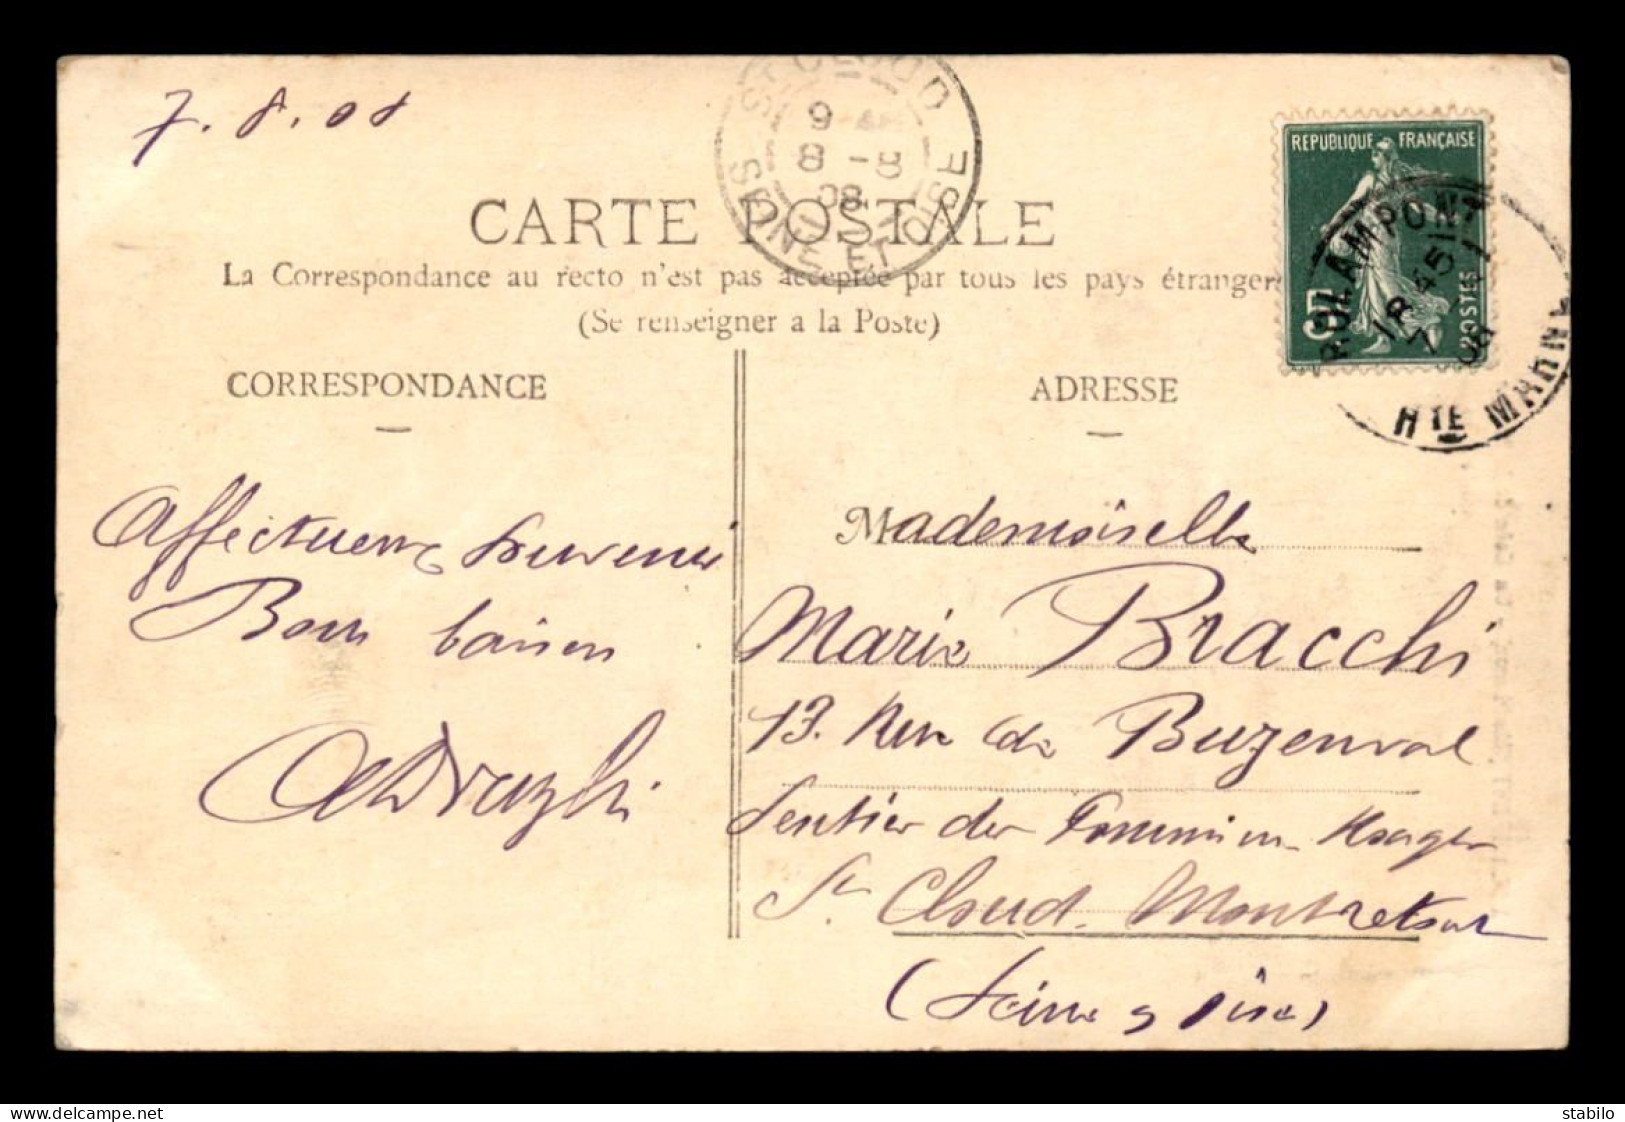 7.8.08
ST CLOUD
9 8 -8 08
SEINE ET OISE
REPUBLIQUE FRANÇAISE
5
POSTES
ROLAMPONT
18 45
7 08
HTE MARNE
CARTE POSTALE
La Correspondance au recto n'est pas acceptée par tous les pays étrangers
(Se renseigner a la Poste)
CORRESPONDANCE
ADRESSE
Affectueux souvenir
Bons baisers
Mademoiselle
Marie Bracchi
13. Rue de Buzenval
Sentier des
St Cloud. Montretout
(Seine & Oise)
www.delcampe.net
stabilo